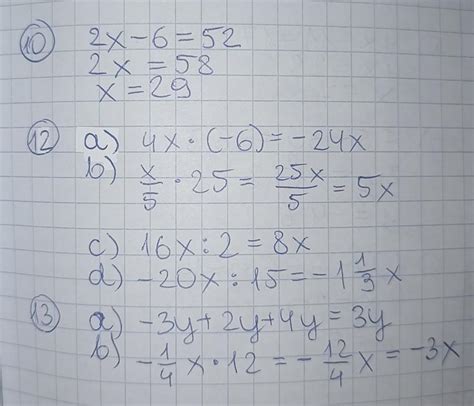 10 2x-6=52
2x=58
x=29
12 a) 4x·(-6)=-24x
b) x/5·25=25x/5=5x
c) 16x:2=8x
d) -20x:15=-1 1/3x
13 a) -3y+2y+4y=3y
b) -1/4x·12=-12/4x=-3x